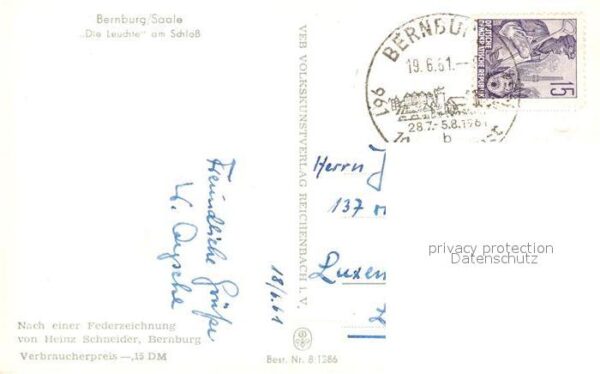 Bernburg/Saale
„Die Leuchte" am Schloß
BERNBU
19.6.61.-
961
28.7.-5.8.1961
b
DEUTSCHE
15
VEB VOLKSKUNSTVERLAG REICHENBACH i. V.
Freundliche Grüße
W.
18/6.61
Herrn J
137
Luxem
privacy protection
Datenschutz
Nach einer Federzeichnung
von Heinz Schneider, Bernburg
Verbraucherpreis —,15 DM
Best. Nr. 8:1286